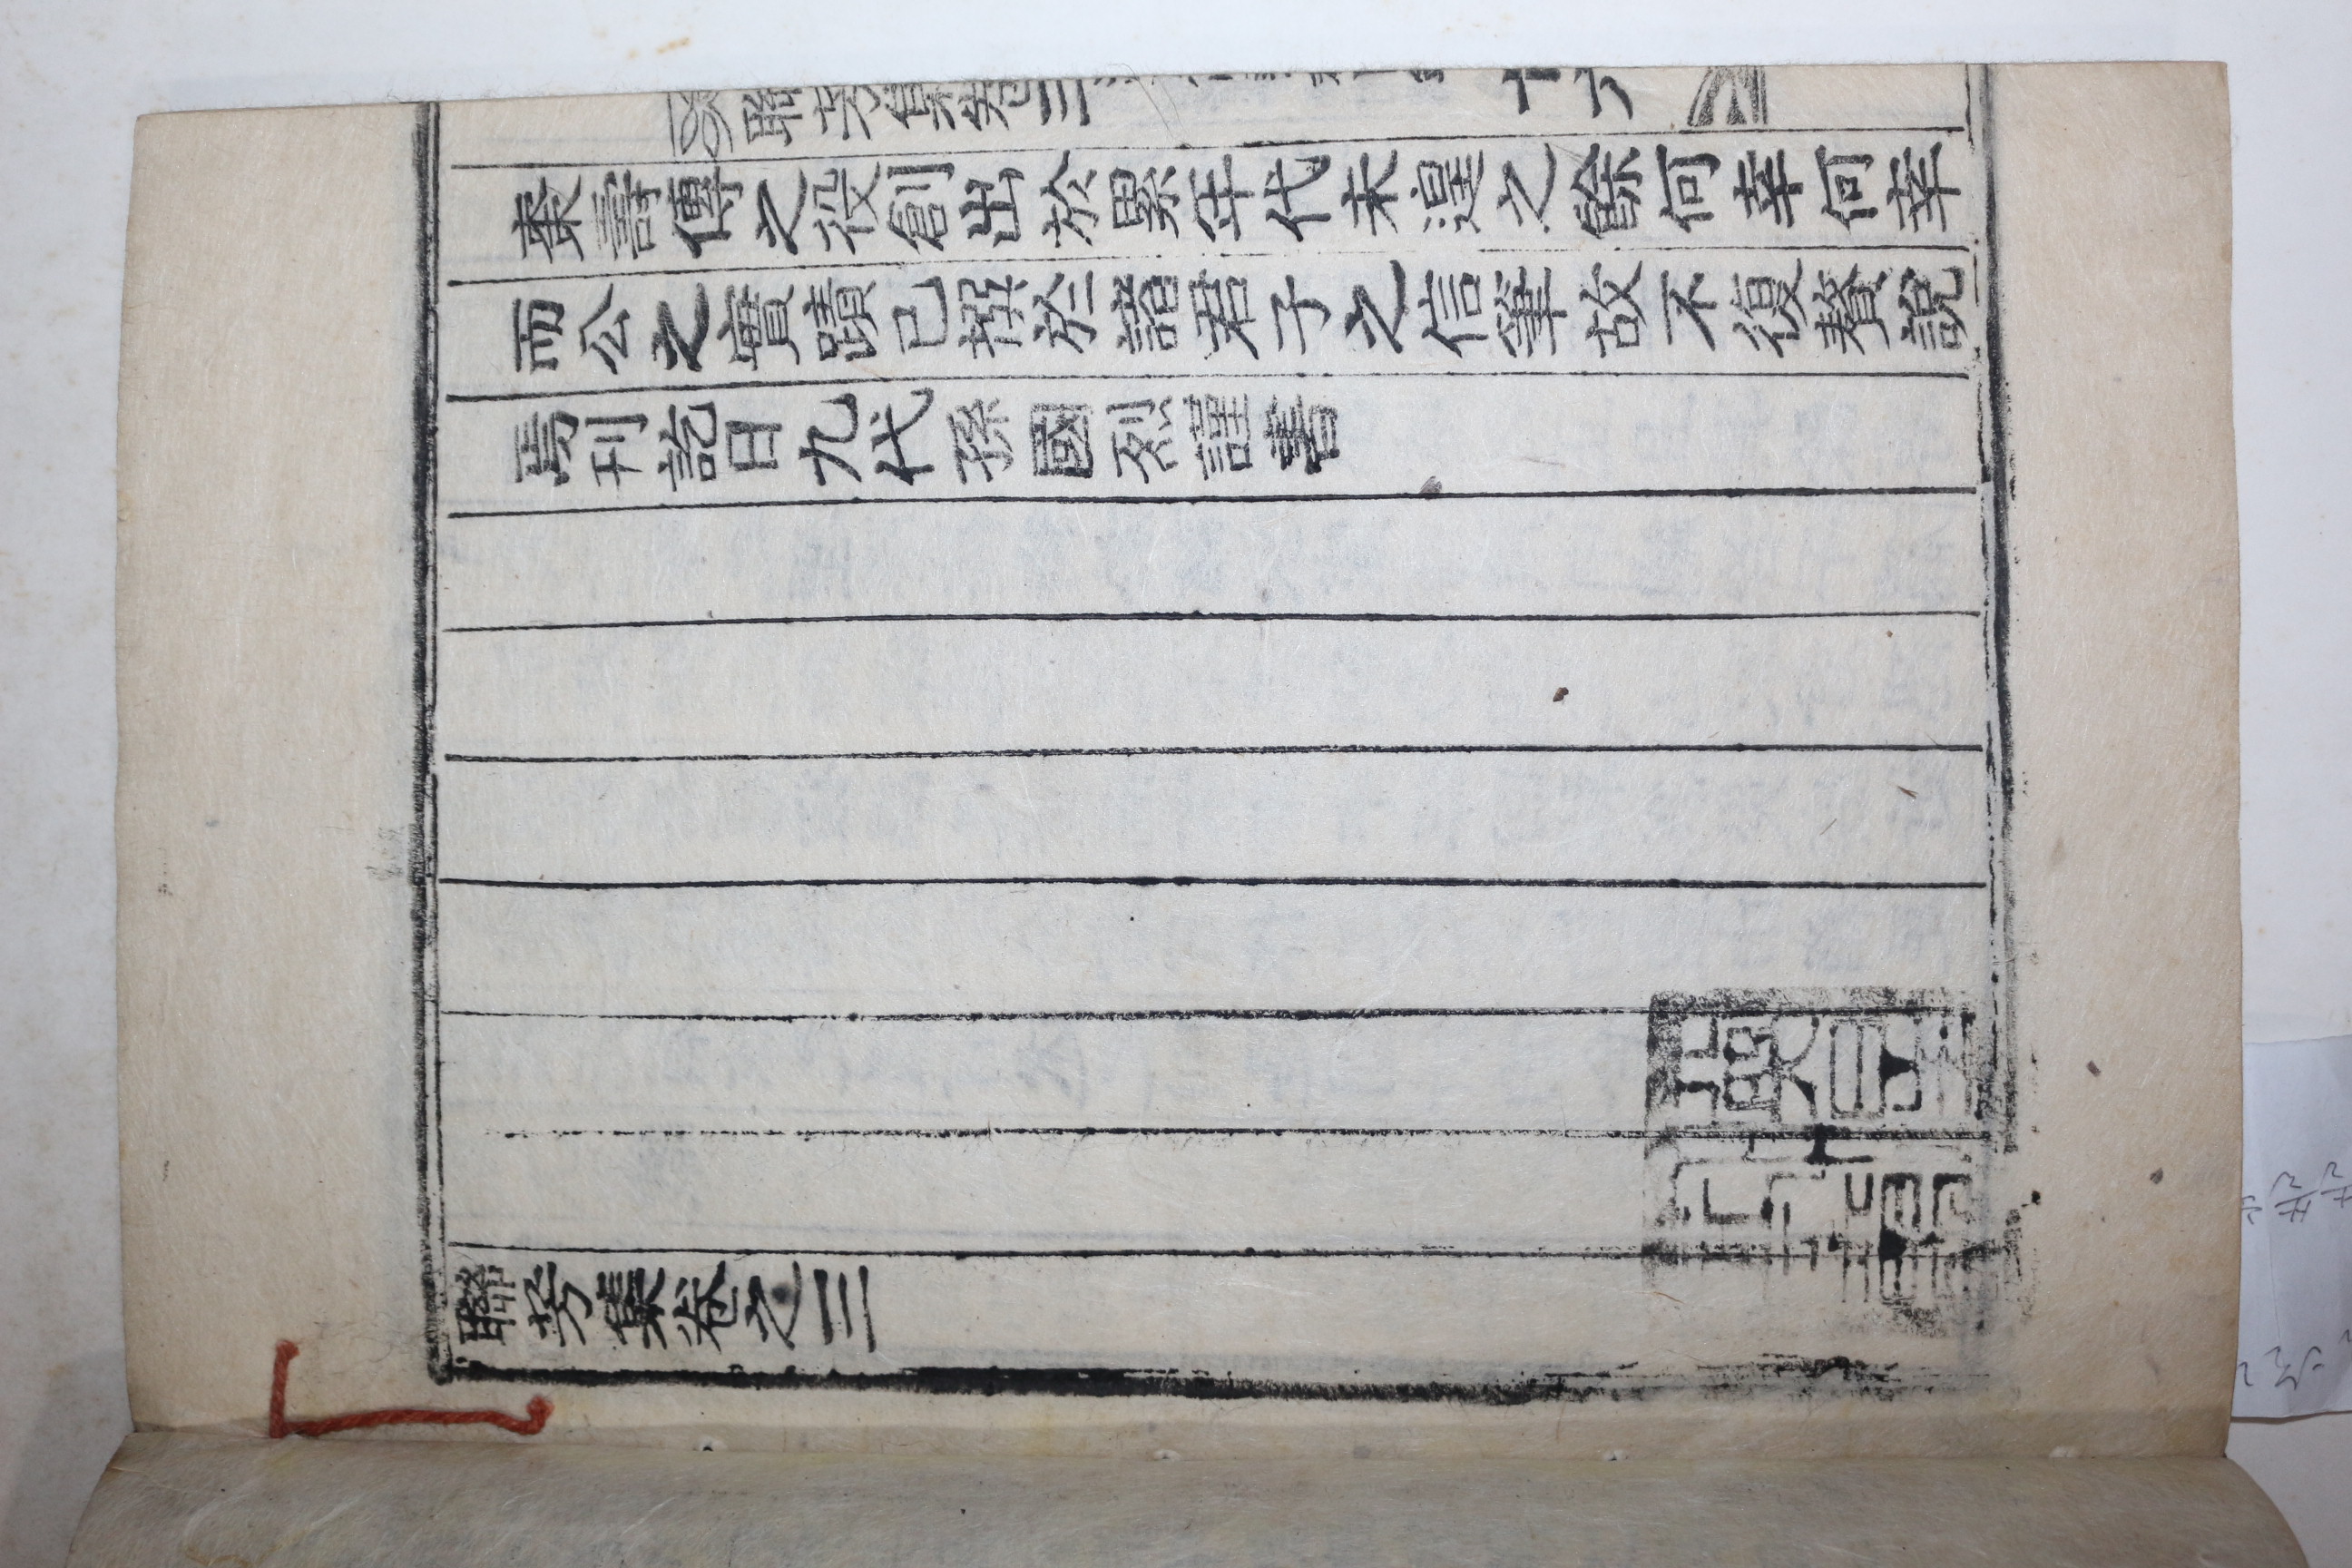 聯芳集卷三
十六
棗壽傳之役創出於累年代未遑之餘何幸何幸
而公之實蹟已撰於諸君子之信筆故不復贅說
焉刊訖日九代孫國烈謹書
聯芳集卷之三